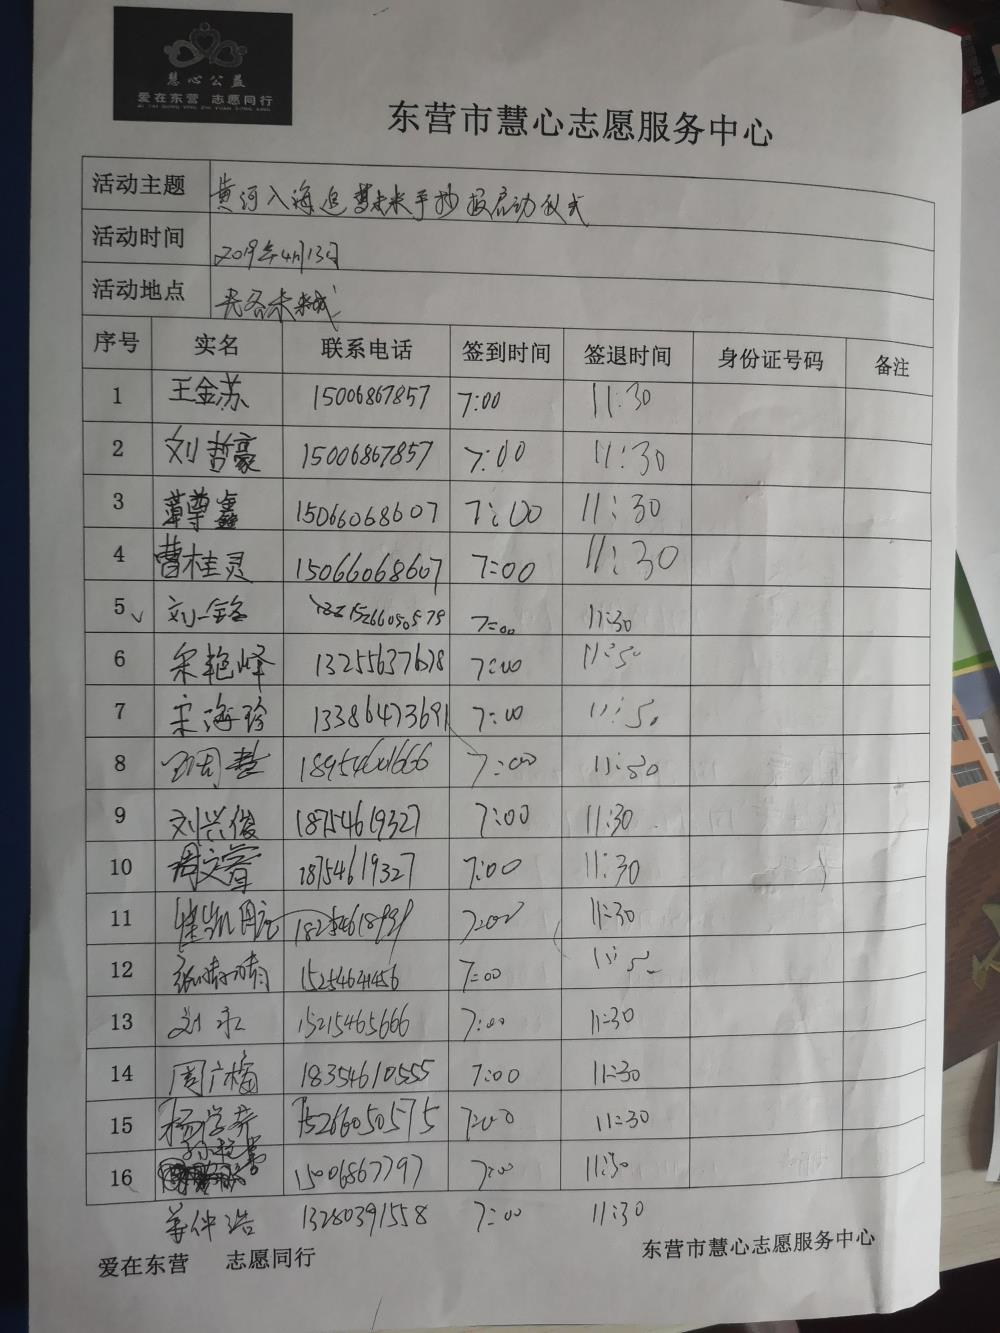 慧心公益
爱在东营 志愿同行
东营市慧心志愿服务中心
活动主题 黄河入海追梦未来手抄报启动仪式
活动时间 2019年4月13日
活动地点 未来城
序号 实名 联系电话 签到时间 签退时间 身份证号码 备注
1 王金苏 15006867857 7:00 11:30
2 刘哲豪 15006867857 7:00 11:30
3 15066068607 7:00 11:30
4 曹桂灵 15066068607 7:00 11:30
5 刘一铭 15266050579 7:00 11:30
6 宋艳峰 13255637678 7:00 11:50
7 宋海玲 13386473691 7:00 11:50
8 18954601666 7:00 11:50
9 刘兴俊 18754619327 7:00 11:30
10 周文 18754619327 7:00 11:30
11 7:00 11:30
12 张晴晴 7:00 11:50
13 刘永 15215465666 7:00 11:30
14 周广梅 18354610555 7:00 11:30
15 杨学奇 15266050575 7:00 11:30
16 15006867797 7:00 11:30
姜仲浩 13280391558 7:00 11:30
爱在东营 志愿同行 东营市慧心志愿服务中心